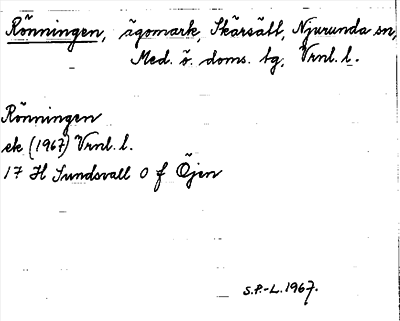 Rönningen, ägomark, Skärsätt, Njurunda sn,
Med. ö. doms. tg, Vrnl. l.
Rönningen
ek (1967) Vrnl. l.
17 H Sundsvall 0 f Öjen
S.P.-L. 1967.